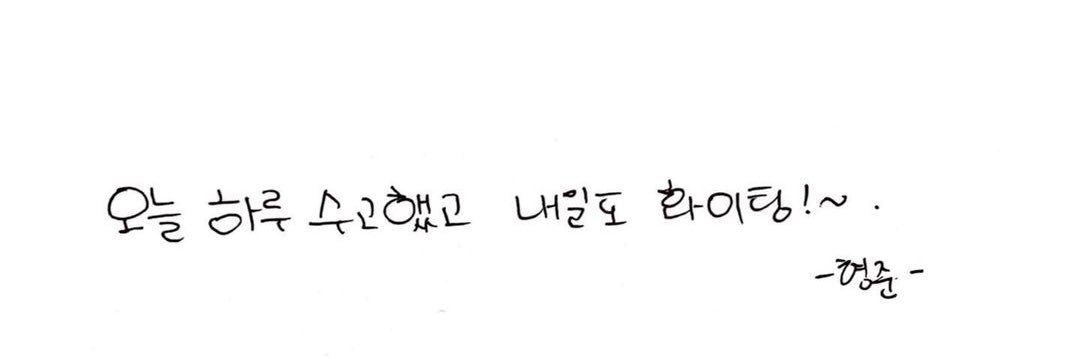 오늘 하루 수고했고 내일도 화이팅!~.
-형준-